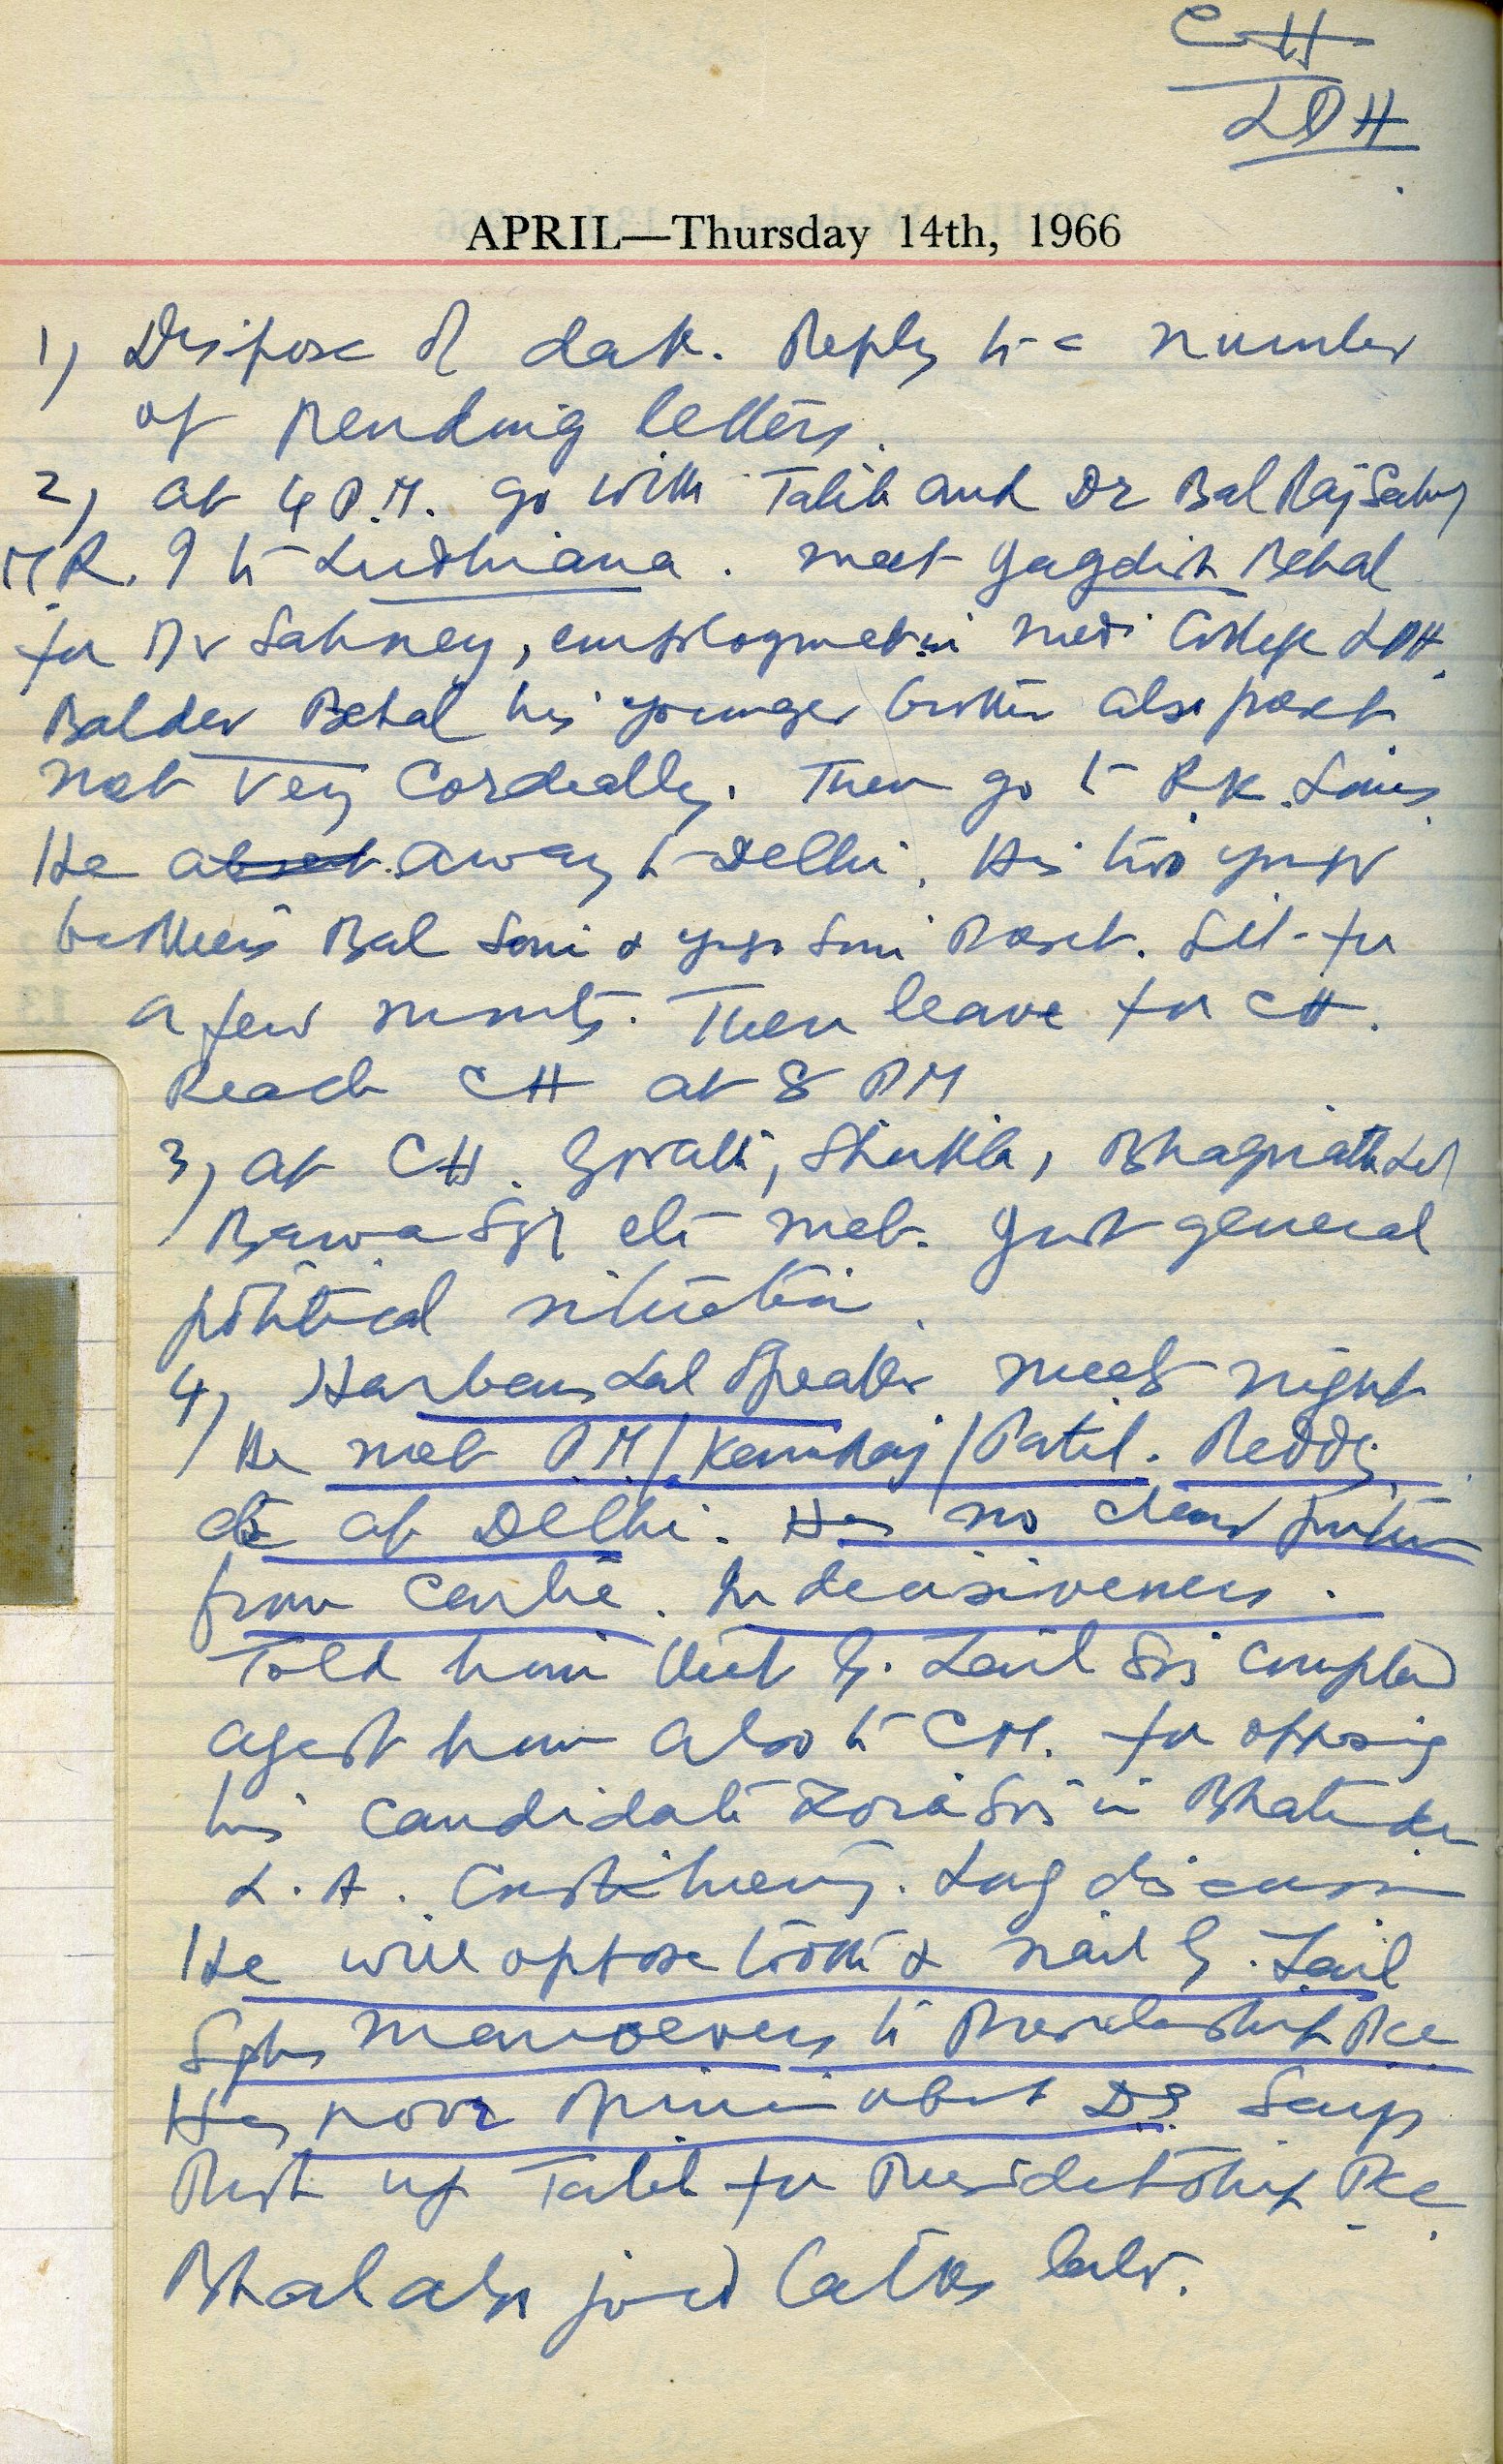 CH
LDH
APRIL—Thursday 14th, 1966
1) Dispose of dak. Reply to a number
of pending letters.
2) at 4 P.M. go with Talib and Dr Bal Raj Sahny
to Ludhiana. meet Jagdish Behal
for Dr Sahney, employmet in Medi College LDH.
Baldev Behal his younger brother also prest
not very cordially. Then go to R.K. Soni's
He absent away to Delhi. His two younger
brothers Bal Soni & Soni Presnt. Sit for
a few minuts. Then leave for CH.
Reach CH at 8 PM
3) at CH. Gorakh, Shukla, Bhagirath Lal
Bawa Sgh etc met. Just general
political situation.
4) Harbans Lal Speaker meet night
He met PM/Kamraj/Patil. Reddy
etc at Delhi. Has no clear picture
from centre. Indecisiveness.
Told him that G. Zail Sgh complaind
agest him also to CM. for opposing
his candidate Zora Sgh in Bhatinda
L.A. Constituency. Long discussion
He will oppose tooth & nail G. Zail
Sghs manoevers to Presidentship PCC
Has poor opinion about DS Says
Push up Talib for Presidentship PCC
Bhal also joined talks later.